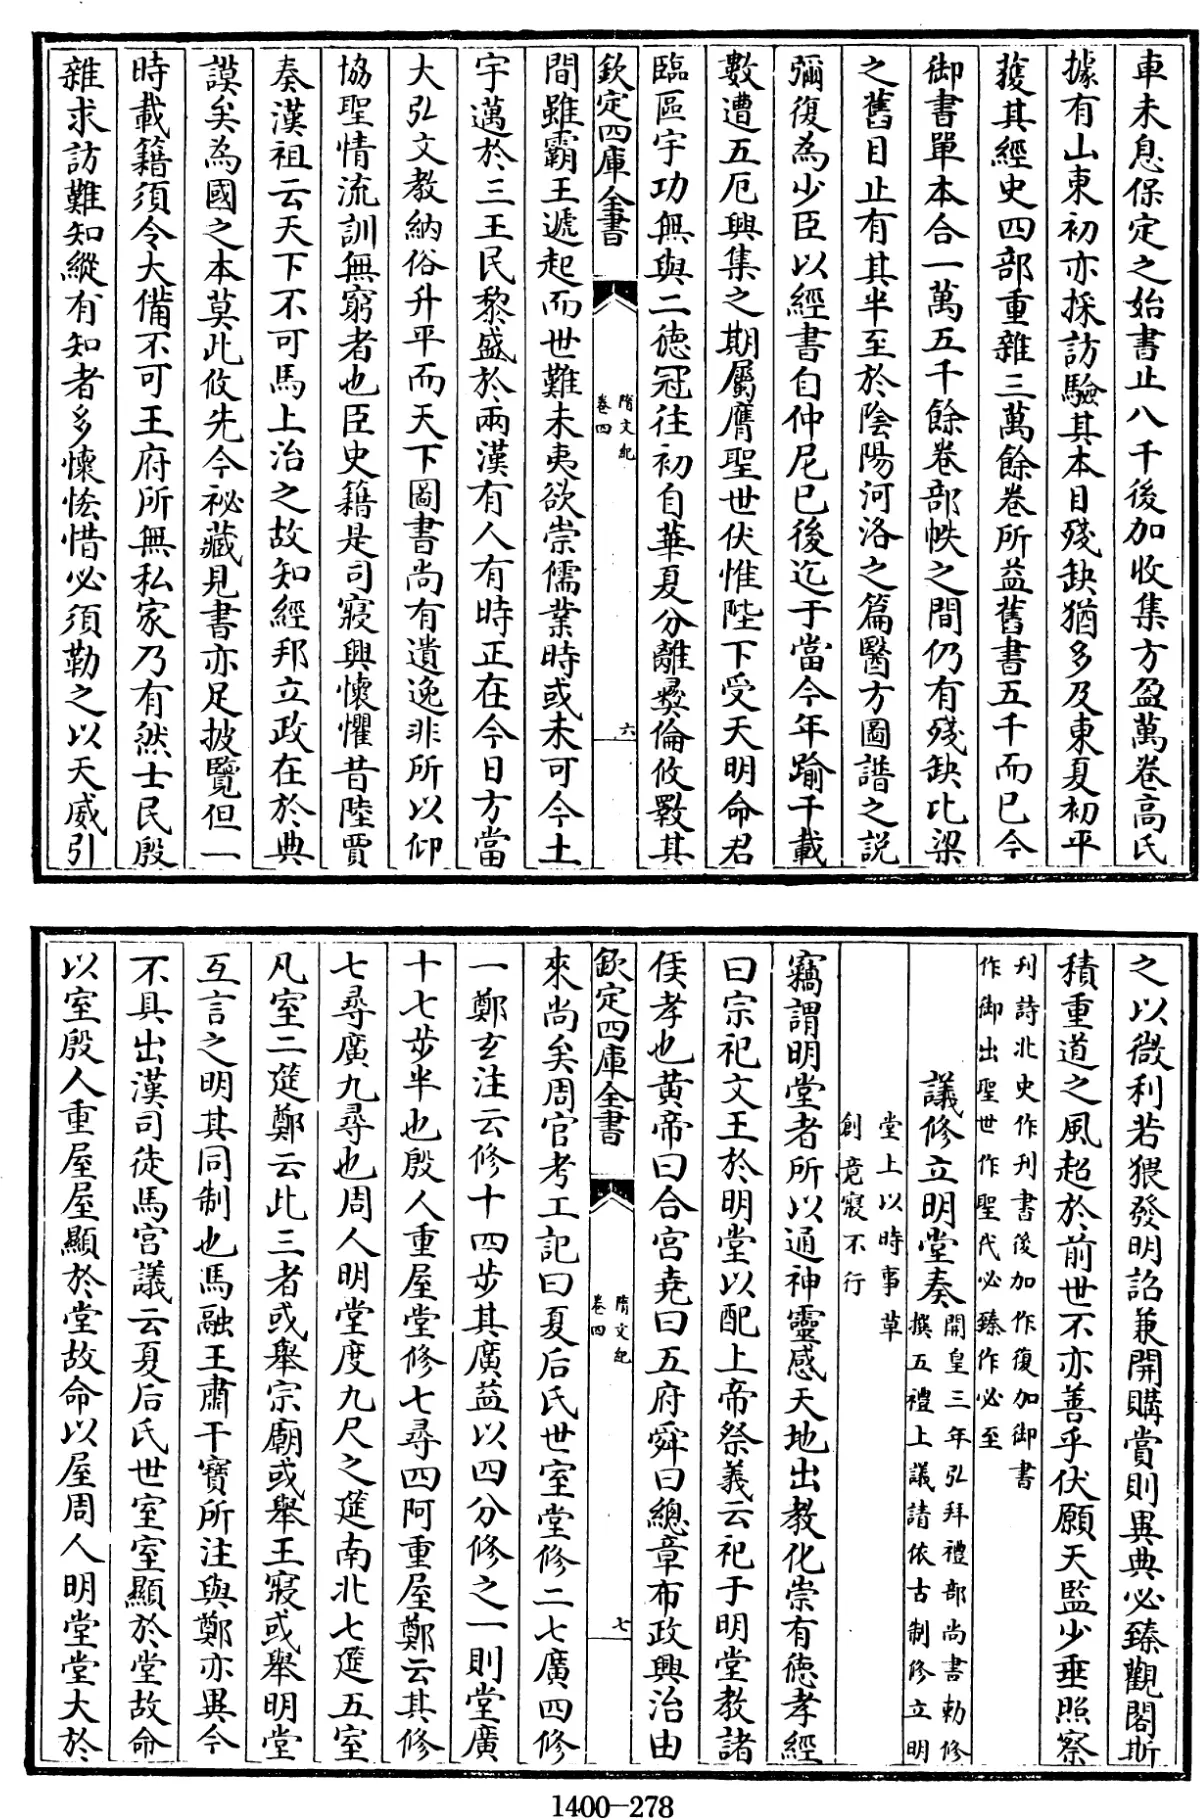 車未息保定之始書止八千後加收集方盈萬卷高氏
據有山東初亦採訪驗其本目殘缺猶多及東夏初平
獲其經史四部重雜三萬餘卷所益舊書五千而已今
御書單本合一萬五千餘卷部帙之間仍有殘缺比梁
之舊目止有其半至於陰陽河洛之篇醫方圖譜之説
彌復為少臣以經書自仲尼已後迄于當今年踰千載
數遭五厄興集之期屬膺聖世伏惟陛下受天明命君
臨區宇功無與二德冠往初自華夏分離彛倫攸斁其
欽定四庫全書
隋文紀
卷四
六
間雖霸王遞起而世難未夷欲崇儒業時或未可今土
宇邁於三王民黎盛於兩漢有人有時正在今日方當
大弘文教納俗升平而天下圖書尚有遺逸非所以仰
協聖情流訓無窮者也臣史籍是司寢興懷懼昔陸賈
奏漢祖云天下不可馬上治之故知經邦立政在於典
謨矣為國之本莫此攸先今祕藏見書亦足披覽但一
時載籍須令大備不可王府所無私家乃有然士民殷
雜求訪難知縱有知者多懷悋惜必須勒之以天威引
之以微利若猥發明詔兼開購賞則異典必臻觀閣斯
積重道之風超於前世不亦善乎伏願天監少垂照察
刋詩北史作刋書後加作復加御書
作御出聖世作聖代必臻作必至
議修立明堂奏
開皇三年弘拜禮部尚書勅修
撰五禮上議請依古制修立明
堂上以時事草
創竟寢不行
竊謂明堂者所以通神靈感天地出教化崇有德孝經
曰宗祀文王於明堂以配上帝祭義云祀于明堂教諸
侯孝也黄帝曰合宫堯曰五府舜曰總章布政興治由
欽定四庫全書
隋文紀
卷四
七
來尚矣周官考工記曰夏后氏世室堂修二七廣四修
一鄭玄注云修十四步其廣益以四分修之一則堂廣
十七步半也殷人重屋堂修七尋四阿重屋鄭云其修
七尋廣九尋也周人明堂度九尺之筵南北七筵五室
凡室二筵鄭云此三者或舉宗廟或舉王寢或舉明堂
互言之明其同制也馬融王肅干寶所注與鄭亦異今
不具出漢司徒馬宫議云夏后氏世室室顯於堂故命
以室殷人重屋屋顯於堂故命以屋周人明堂堂大於
1400-278